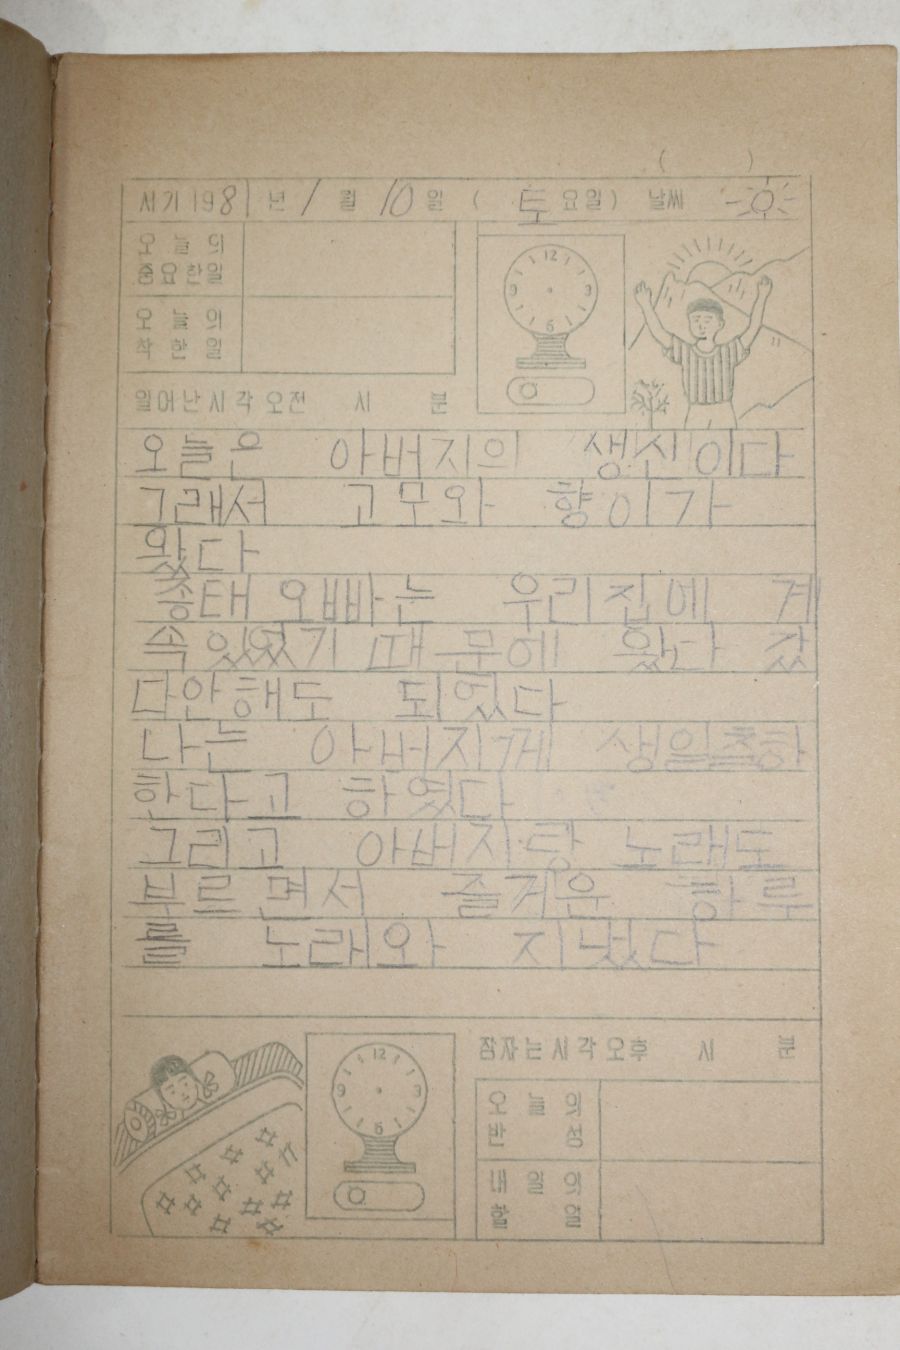 ( )
서기 1981년 1월 10일 ( 토요일) 날씨
오늘의
중요한일
오늘의
착한일
12
9 3
6
일어난시각 오전 시 분
오늘은 아버지의 생신이다
그래서 고모와 향이가
왔다
종태 오빠는 우리집에 계
속있었기 때문에 왔다 갔
다안해도 되었다
나는 아버지께 생일축하
한다고 하였다
그리고 아버지랑 노래도
부르면서 즐거운 하루
를 노래와 지냈다
12
9 3
6
잠자는시각 오후 시 분
오늘의
반성
내일의
할일